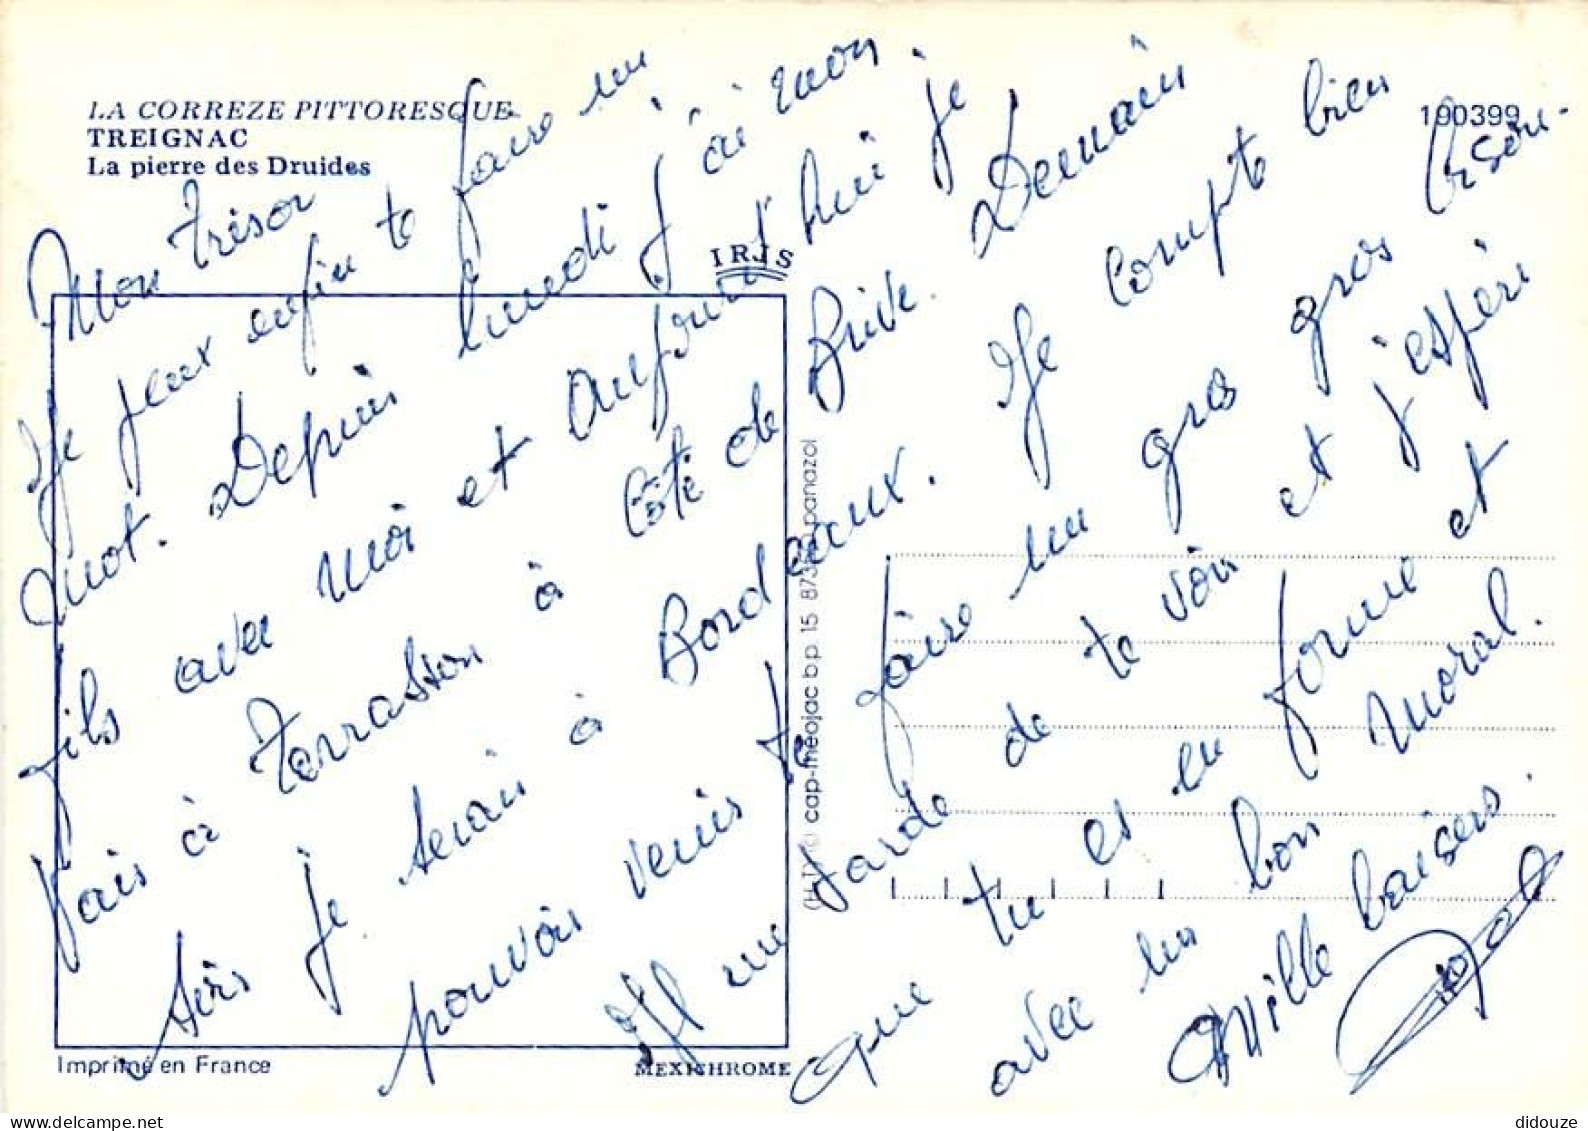 LA CORREZE PITTORESQUE
TREIGNAC
La pierre des Druides
190399
IRIS
Mon trésor
Je peux enfin te faire un
mot. Depuis lundi j'ai mon
fils avec moi et aujourd'hui je
fais à Terrasson à côté de Brive. Demain
soir je serais à Bordeaux. Je compte bien
pouvoir venir te faire un gros gros gros bisou.
Il me tarde de te voir et j'espère
que tu es en forme et
avec un bon moral.
Mille baisers.
(H-T) © cap-théojac b p 15 87350 panazol
Imprimé en France
MEXICHROME
didouze